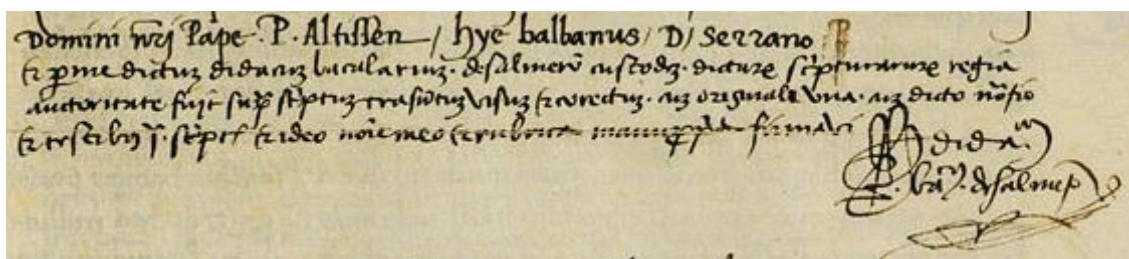 Domini nr̄i Pāpe . P. Altissen / hyē balbanus / D / Serrano
Et p me dictuz didacuz bacularium . desalmerō custodez . dictarum scripturarum regia
auctoritate fuit sup̄ scriptuz trasūtuz visuz et corectuz . cuz originale una . cuz dicto nōtio
Et testibus ī . script̄ Et ideo noīe meo et rubrica manu ꝓp̄a firmavi
dida
bā . desalmer